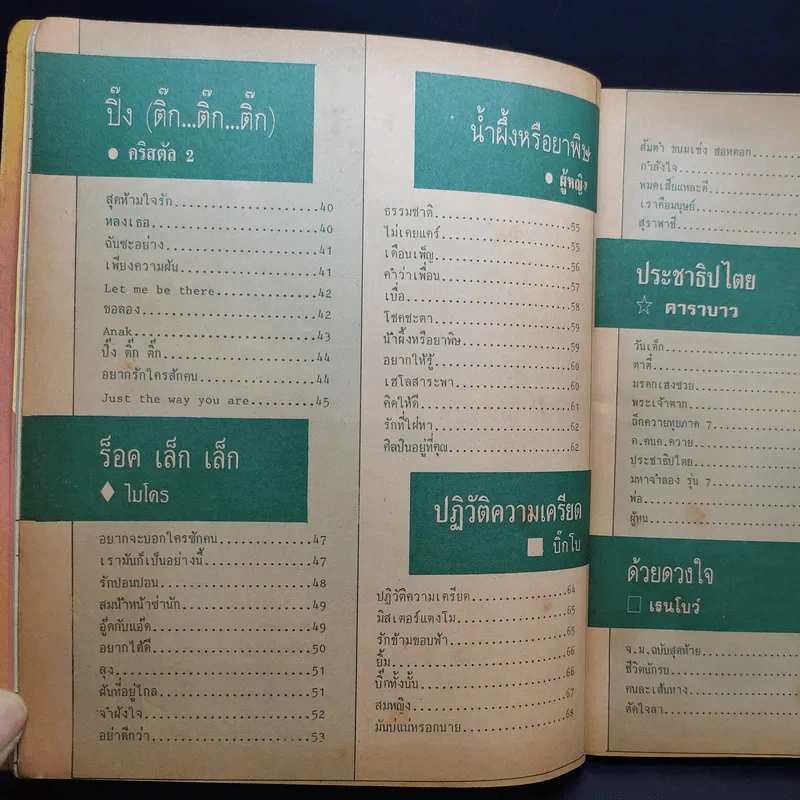 ปิ๊ง (ติ๊ก...ติ๊ก...ติ๊ก)
● คริสตัล 2
สุดห้ามใจรัก....................40
หลงเธอ....................40
ฉันซะอย่าง....................41
เพียงความฝัน....................41
Let me be there.........42
ขอลอง....................42
Anak....................43
ปิ๊ง ติ๊ก ติ๊ก....................44
อยากรักใครสักคน....................44
Just the way you are.........45
ร็อค เล็ก เล็ก
♦ ไมโคร
อยากจะบอกใครซักคน....................47
เรามันก็เป็นอย่างนี้....................47
รักปอนปอน....................48
สมน้ำหน้าซ่านัก....................49
อู๊ดกับแอ๊ด....................49
อยากได้ดี....................50
ลุง....................51
ฝันที่อยู่ไกล....................51
จำฝังใจ....................52
อย่าดีกว่า....................53
น้ำผึ้งหรือยาพิษ
● ผู้หญิง
ธรรมชาติ....................55
ไม่เคยแคร์....................55
เดือนเพ็ญ....................56
คำว่าเพื่อน....................57
เบื่อ....................58
โชคชะตา....................59
น้ำผึ้งหรือยาพิษ....................59
อยากให้รู้....................60
เฮโลสาระพา....................60
คิดให้ดี....................61
รักที่ใฝ่หา....................62
ศิลปินอยู่ที่คุณ....................62
ปฏิวัติความเครียด
■ บิ๊กโบ
ปฏิวัติความเครียด....................64
มิสเตอร์แตงโม....................65
รักข้ามขอบฟ้า....................65
ยิ้ม....................66
บิ๊กทั้งนั้น....................66
สมหญิง....................67
มันบ่แน่หรอกนาย....................68
ส้มตำ ขนมเข่ง ฮอทดอก.........
กำลังใจ....................
หมดเสียแหละดี....................
เราคือมนุษย์....................
สุราพาชี....................
ประชาธิปไตย
☆ คาราบาว
วันเด็ก....................
ตาตี๋....................
มรดกเฮงซวย....................
พระเจ้าตาก....................
ถึกควายทุยภาค 7....................
ค.คนค.ควาย....................
ประชาธิปไตย....................
มหาจำลอง รุ่น 7....................
พ่อ....................
ผู้ทน....................
ด้วยดวงใจ
□ เรนโบว์
จ.ม.ฉบับสุดท้าย....................
ชีวิตนักรบ....................
คนละเส้นทาง....................
ตัดใจลา....................